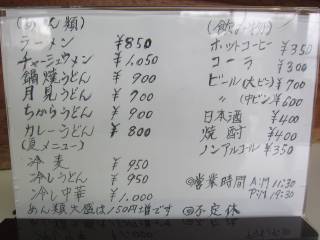 (めん類)
ラーメン ¥850
チャーシューメン ¥1,050
鍋焼うどん ¥900
月見うどん ¥700
ちからうどん ¥900
カレーうどん ¥800
(夏メニュー)
冷麦 ¥950
冷しうどん ¥950
冷し中華 ¥1.000
めん類大盛は150円増です
ホットコーヒー ¥350
コーラ ¥300
ビール(大ビン) ¥700
〃(中ビン) ¥600
日本酒 ¥400
焼酎 ¥400
ノンアルコール ¥350
◎営業時間 A:M 11:30
P:M 19:30
◎不定休